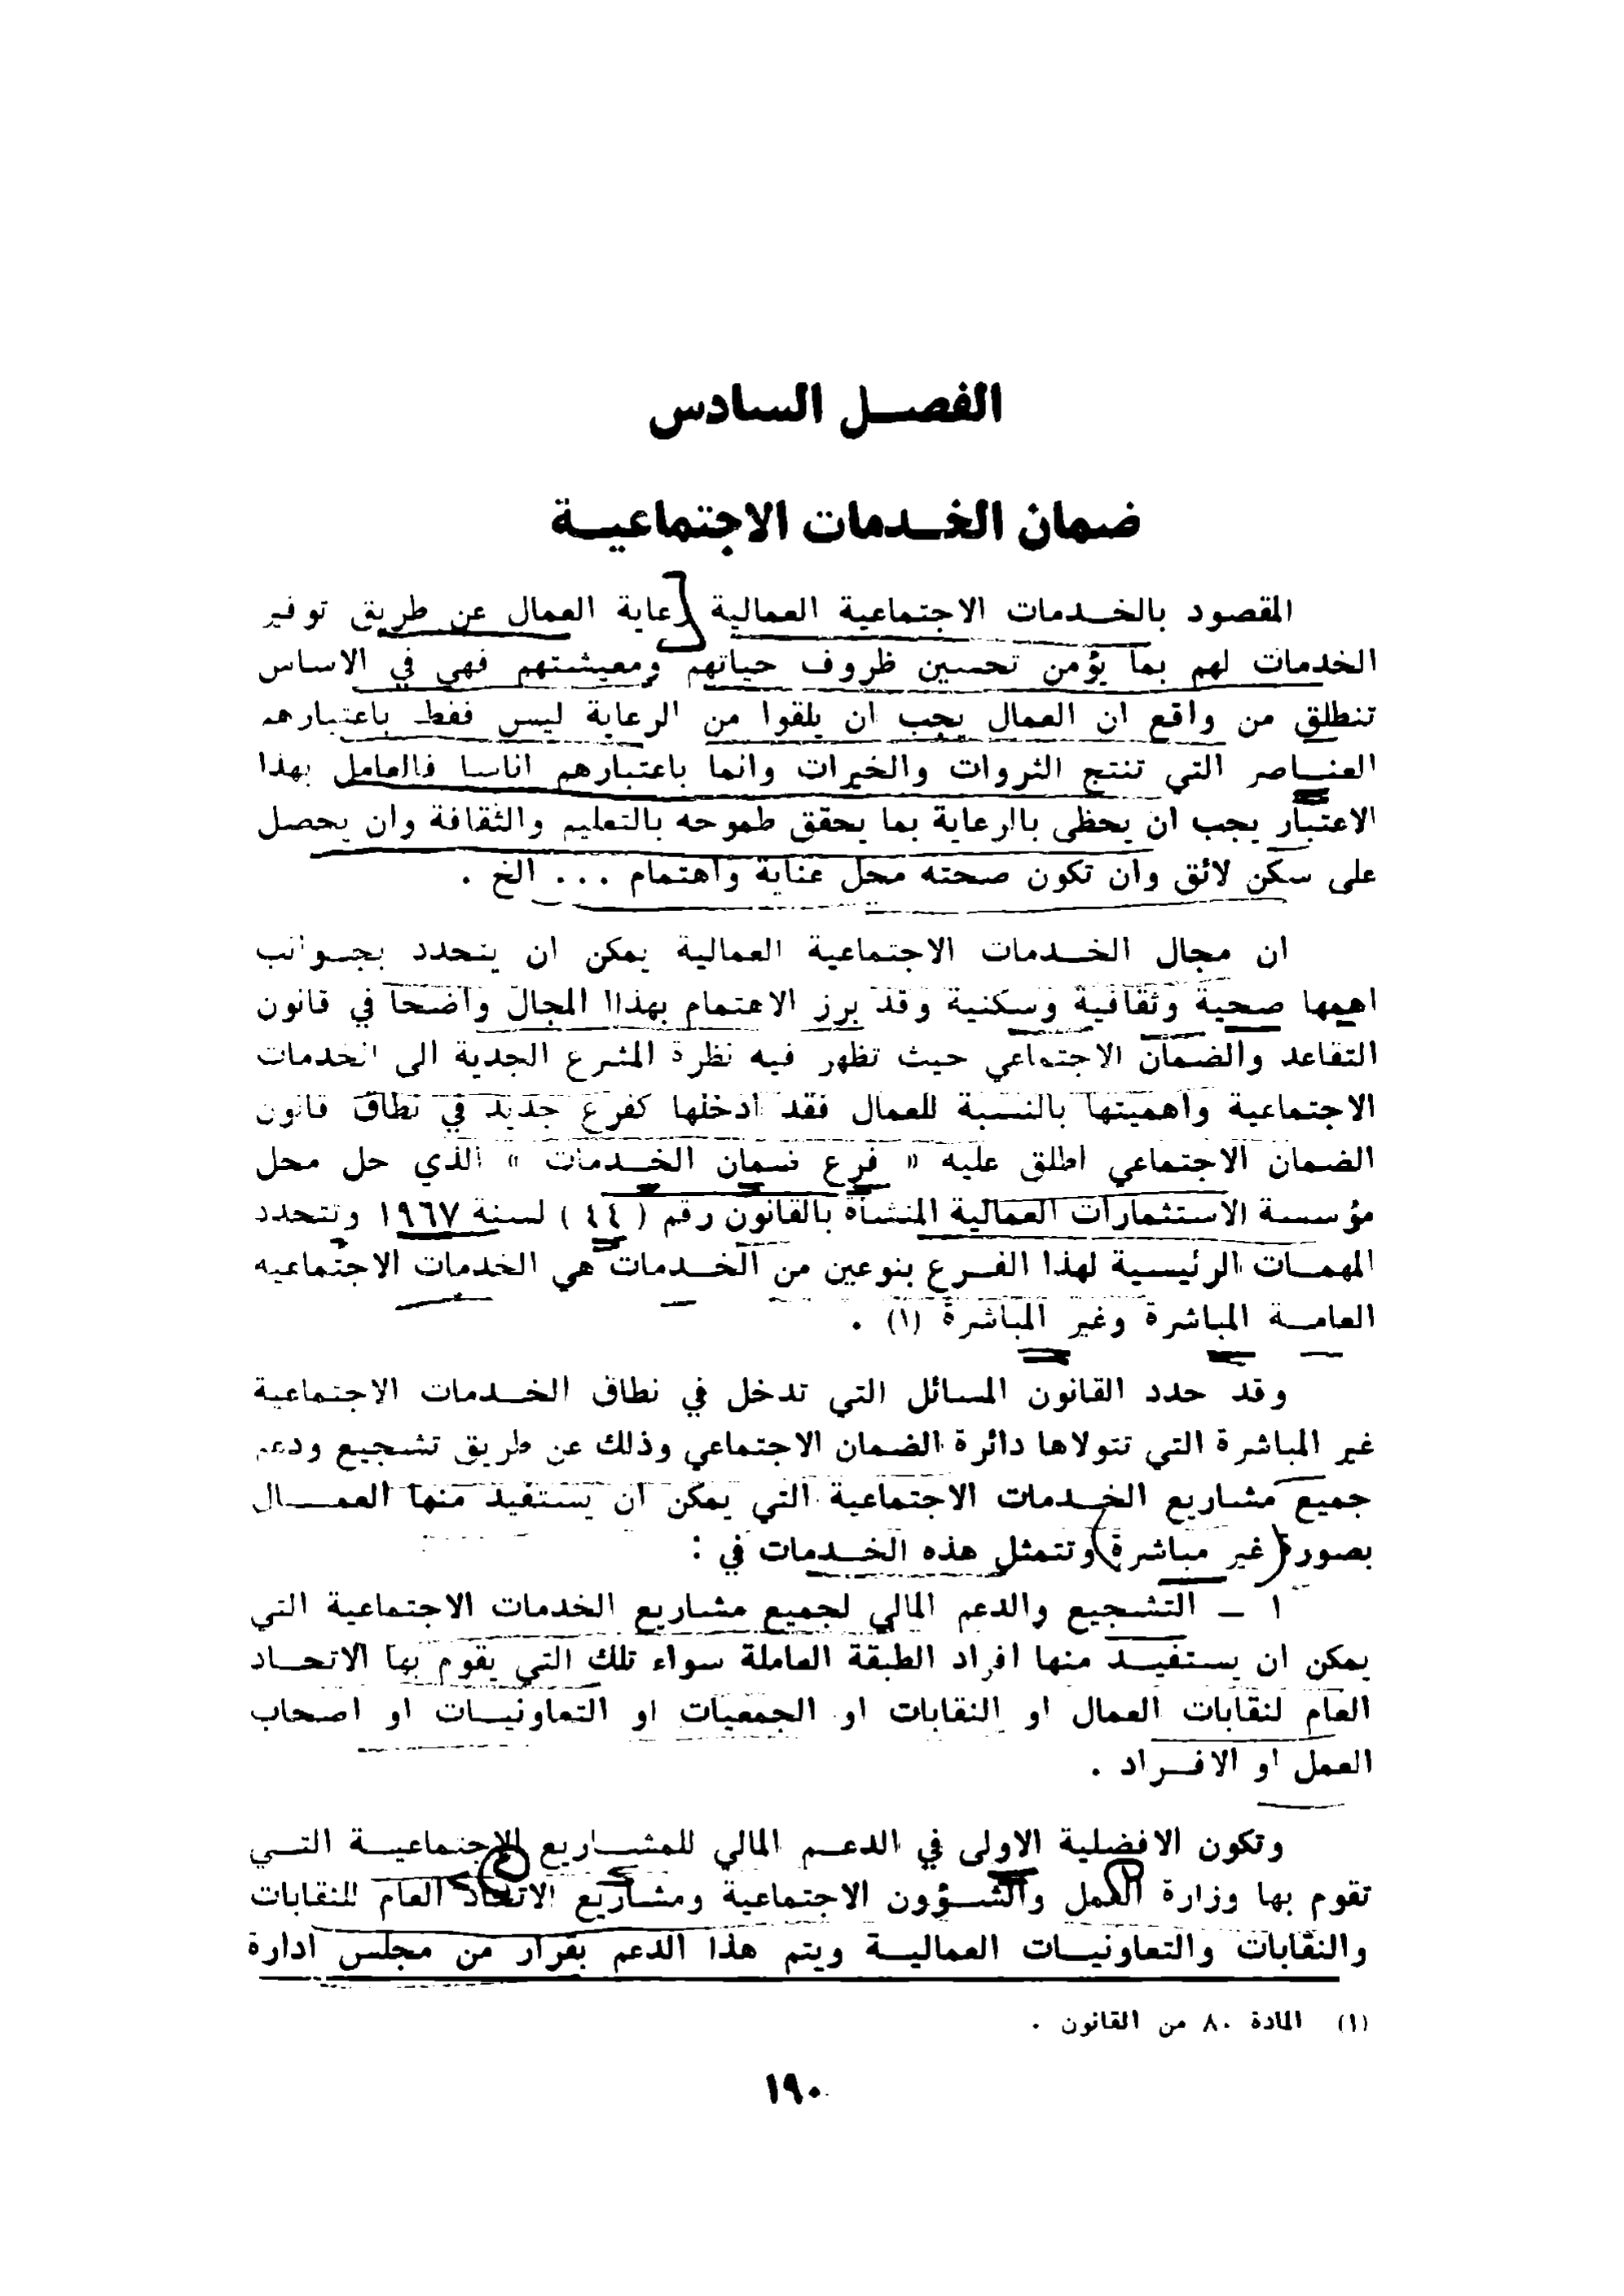 الفصل السادس
ضمان الخدمات الاجتماعية
المقصود بالخدمات الاجتماعية العمالية رعاية العمال عن طريق توفير
الخدمات لهم بما يؤمن تحسين ظروف حياتهم ومعيشتهم فهي في الاساس
تنطلق من واقع ان العمال يجب ان يلقوا من الرعاية ليس فقط باعتبارهم
العناصر التي تنتج الثروات والخيرات وانما باعتبارهم اناسا فالعامل بهذا
الاعتبار يجب ان يحظى بالرعاية بما يحقق طموحه بالتعليم والثقافة وان يحصل
على سكن لائق وان تكون صحته محل عناية واهتمام ... الخ .
ان مجال الخدمات الاجتماعية العمالية يمكن ان يتحدد بجوانب
اهمها صحية وثقافية وسكنية وقد برز الاهتمام بهذاا المجال واضحا في قانون
التقاعد والضمان الاجتماعي حيث تظهر فيه نظرة المشرع الجدية الى الخدمات
الاجتماعية واهميتها بالنسبة للعمال فقد ادخلها كفرع جديد في نطاق قانون
الضمان الاجتماعي اطلق عليه « فرع ضمان الخدمات » الذي حل محل
مؤسسة الاستثمارات العمالية المنشأة بالقانون رقم ( ٤٤ ) لسنة ١٩٦٧ وتتحدد
المهمات الرئيسية لهذا الفرع بنوعين من الخدمات هي الخدمات الاجتماعيه
العامة المباشرة وغير المباشرة (١) .
وقد حدد القانون المسائل التي تدخل في نطاق الخدمات الاجتماعية
غير المباشرة التي تتولاها دائرة الضمان الاجتماعي وذلك عن طريق تشجيع ودعم
جميع مشاريع الخدمات الاجتماعية التي يمكن ان يستفيد منها العمال
بصورة غير مباشرة وتتمثل هذه الخدمات في :
١ ـ التشجيع والدعم المالي لجميع مشاريع الخدمات الاجتماعية التي
يمكن ان يستفيد منها افراد الطبقة العاملة سواء تلك التي يقوم بها الاتحاد
العام لنقابات العمال او النقابات او الجمعيات او التعاونيات او اصحاب
العمل او الافراد .
وتكون الافضلية الاولى في الدعم المالي للمشاريع الاجتماعية التي
تقوم بها وزارة العمل والشؤون الاجتماعية ومشاريع الاتحاد العام للنقابات
والنقابات والتعاونيات العمالية ويتم هذا الدعم بقرار من مجلس ادارة
(١) المادة ٨٠ من القانون .
١٩٠